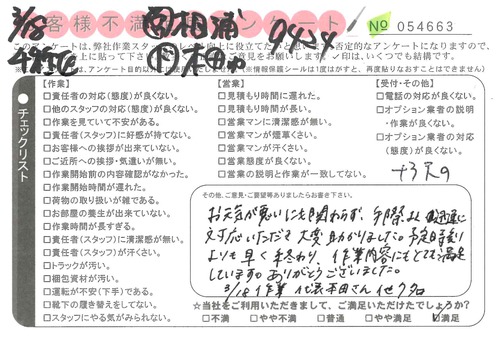 お客様不満足アンケート
No 054663
3/18
相浦
9454
このアンケートは、弊社作業スタッフのレベル向上に役立てたいと思います。否定的なアンケートになりますので、
見をお願いします。✓印は、いくつでも結構です。
(※情報保護シールは1度はがすと、再度貼りなおすことはできません)
チェックリスト
【作業】
□責任者の対応(態度)が良くない。
□他のスタッフの対応(態度)が良くない。
□作業を見ていて不安がある。
□責任者(スタッフ)に好感が持てない。
□お客様への挨拶が出来ていない。
□ご近所への挨拶・気遣いが無い。
□作業開始前の内容確認がなかった。
□作業開始時間が遅れた。
□荷物の取り扱いが雑である。
□お部屋の養生が出来ていない。
□作業時間が長すぎる。
□責任者(スタッフ)に清潔感が無い。
□責任者(スタッフ)が汗くさい。
□トラックが汚い。
□梱包資材が汚い。
□運転が不安(下手)である。
□靴下の履き替えをしてない。
□スタッフにやる気がみられない。
【営業】
□見積もり時間に遅れた。
□見積もり時間が長い。
□営業マンに清潔感が無い。
□営業マンが煙草くさい。
□営業マンが汗くさい。
□営業態度が良くない。
□営業の説明と作業が一致してない。
【受付・その他】
□電話の対応が良くない。
□オプション業者の説明
・作業が良くない。
□オプション業者の対応
(態度)が良くない。
その他、ご意見・ご要望等ありましたらお書き下さい。
お天気が悪いにも関わらず、手際よく迅速に
対応いただき大変助かりました。予定時刻
よりも早く終わり、作業内容にもとても満足
しています。ありがとうございました。
3/18 作業
☆当社をご利用いただきまして、ご満足いただけたでしょうか?
□不満 □やや不満 □普通 □やや満足 ☑満足